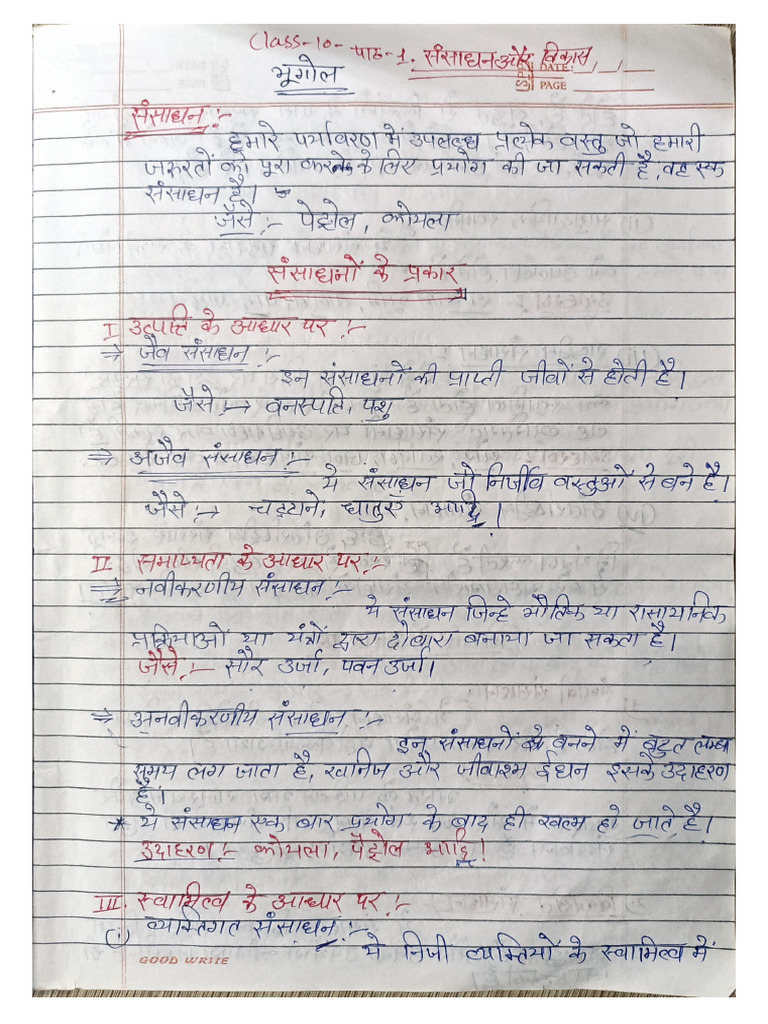 Class-10- पाठ-1. संसाधन और विकास
भूगोल
DATE: / /
PAGE
संसाधन :-
हमारे पर्यावरण में उपलब्ध प्रत्येक वस्तु जो हमारी
जरूरतों को पूरा करने के लिए प्रयोग की जा सकती है, वह एक
संसाधन है।
जैसे :- पेट्रोल, कोयला
संसाधनों के प्रकार
I उत्पत्ति के आधार पर :-
⇒ जैव संसाधन :-
इन संसाधनों की प्राप्ती जीवों से होती है।
जैसे :→ वनस्पति, पशु
⇒ अजैव संसाधन :-
ये संसाधन जो निर्जीव वस्तुओं से बने है।
जैसे :→ चट्टाने, धातुएं आदि।
II. समाप्यता के आधार पर :-
⇒ नवीकरणीय संसाधन :-
ये संसाधन जिन्हे भौतिक या रासायनिक
प्रक्रियाओं या यंत्रों द्वारा दोबारा बनाया जा सकता है।
जैसे :- सौर उर्जा, पवन उर्जा।
⇒ अनवीकरणीय संसाधन :-
इन संसाधनों को बनने में बहुत लम्बा
समय लग जाता है, खनिज और जीवाश्म ईधन इसके उदाहरण
है।
* ये संसाधन एक बार प्रयोग के बाद ही खत्म हो जाते है।
उदाहरण :- कोयला, पेट्रोल आदि।
III. स्वामित्व के आधार पर :-
(i) व्यक्तिगत संसाधन :-
ये निजी व्यक्तियों के स्वामित्व में
GOOD WRITE